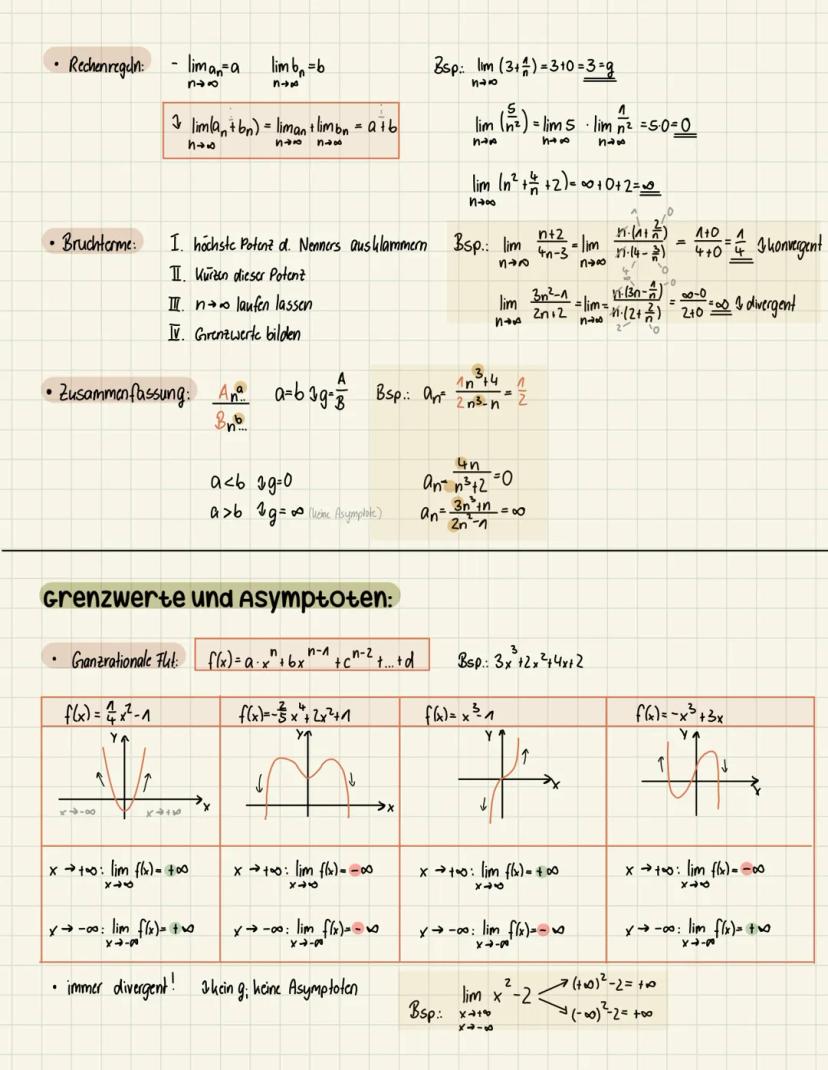 • Rechenregeln: - lim aₙ = a lim bₙ = b
n→∞ n→∞
↴ lim(aₙ ± bₙ) = lim aₙ ± lim bₙ = a ± b
n→∞ n→∞ n→∞
Bsp.: lim (3+1/n) = 3+0 = 3 = g
n→∞
lim (5/n²) = lim 5 · lim 1/n² = 5·0 = 0
n→∞ n→∞ n→∞
lim (n² + 4/n + 2) = ∞+0+2 = ∞
n→∞
• Bruchterme: I. höchste Potenz d. Nenners ausklammern
II. Kürzen dieser Potenz
III. n→∞ laufen lassen
IV. Grenzwerte bilden
Bsp.: lim (n+2)/(4n-3) = lim (n·(1+2/n))/(n·(4-3/n)) = (1+0)/(4+0) = 1/4 ↴ konvergent
n→∞ n→∞
1 0
4 0
lim (3n²-1)/(2n+2) = lim = (n·(3n-1/n))/(n·(2+2/n)) = (∞-0)/(2+0) = ∞ ↴ divergent
n→∞ n→∞
∞ 0
2 0
• Zusammenfassung: Anᵃ.../Bnᵇ... a=b ↴ g = A/B
a<b ↴ g=0
a>b ↴ g=∞ (keine Asymptote)
Bsp.: aₙ = (1n³+4)/(2n³-n) = 1/2
aₙ = 4n/(n³+2) = 0
aₙ = (3n³+n)/(2n²-1) = ∞
Grenzwerte und Asymptoten:
• Ganzrationale Fkt: f(x) = a·xⁿ + bxⁿ⁻¹ + cⁿ⁻² + ... + d Bsp.: 3x³+2x²+4x+2
f(x) = 1/4 x²-1 f(x) = -2/5 x⁴+2x²+1 f(x) = x³-1 f(x) = -x³+3x
y y y y
x x x x
x→-∞ x→+∞
x→+∞: lim f(x) = +∞ x→+∞: lim f(x) = -∞ x→+∞: lim f(x) = +∞ x→+∞: lim f(x) = -∞
x→∞ x→∞ x→∞ x→∞
x→-∞: lim f(x) = +∞ x→-∞: lim f(x) = -∞ x→-∞: lim f(x) = -∞ x→-∞: lim f(x) = +∞
x→-∞ x→-∞ x→-∞ x→-∞
• immer divergent! ↴ kein g; keine Asymptoten
Bsp.: lim x²-2 (+∞)²-2 = +∞
x→+∞
x→-∞ (-∞)²-2 = +∞